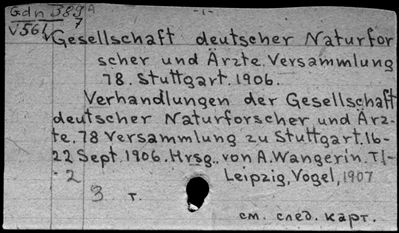 Gdn 589 A
7 -1-
V561
Gesellschaft deutscher Naturfor
scher und Ärzte. Versammlung
78. Stuttgart. 1906.
Verhandlungen der Gesellschaft
deutscher Naturforscher und Ärz-
te. 78 Versammlung zu Stuttgart. 16-
22 Sept. 1906. Hrsg. von A. Wangerin. T1-
-2 Leipzig, Vogel, 1907
3 т.
см. след. карт.